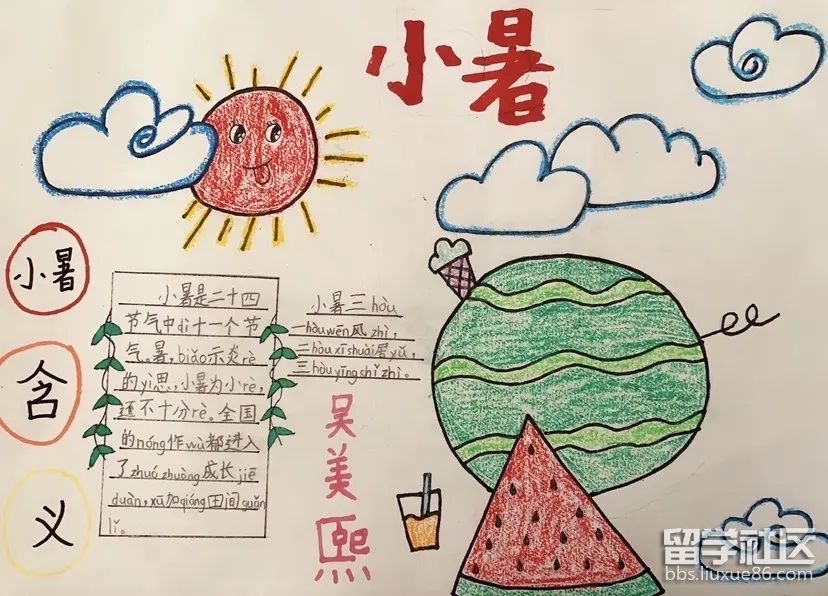 小暑
小暑
含
义
小暑是二十四
节气中dì十一个节
气。暑,biǎo示炎rè
的yì思,小暑为小rè,
还不十分rè。全国
的nóng作wù都进入
了zhuó zhuàng成长jiē
duàn,xū加qiáng田间guǎn
lǐ。
小暑三hòu
一hòu wēn风zhì,
二hòu xī shuài居yǔ,
三hòu yīng shǐ zhì。
吴美熙
留学社区
bbs.liuxue86.com